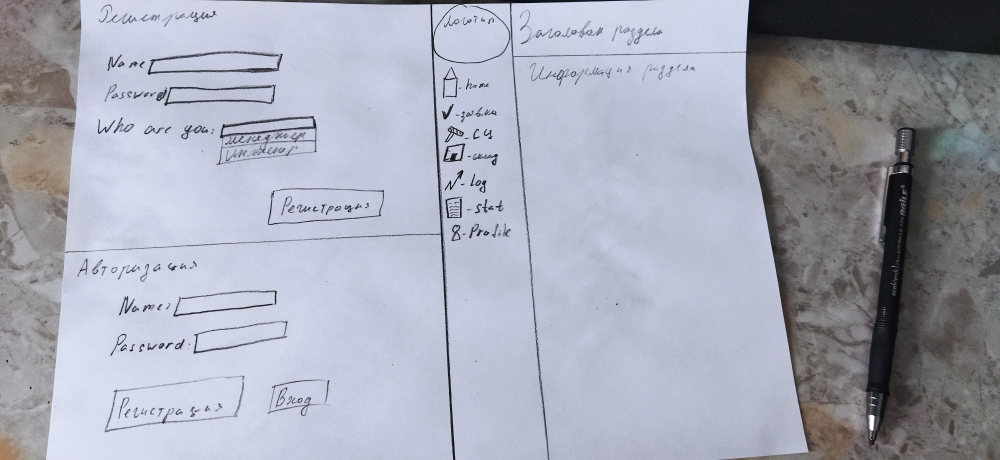 Регистрация
Name:
Password
Who are you:
менеджер
инженер
Регистрация
Авторизация
Name:
Password:
Регистрация
Вход
Логотип
- home
- заявки
- СЦ
- склад
- log
- stat
- Profile
Заголовок раздела
Информация раздела